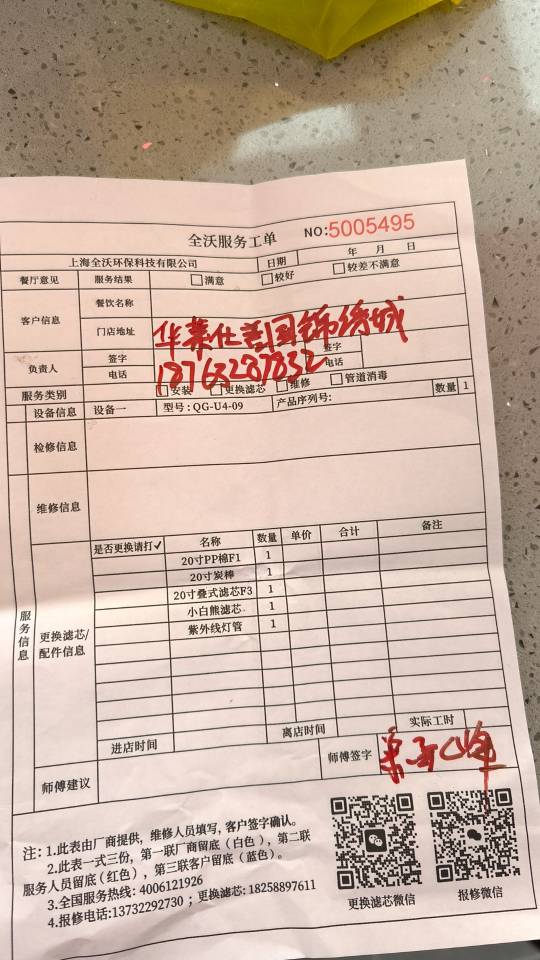 全沃服务工单 NO:5005495
上海全沃环保科技有限公司 日期 年 月 日
餐厅意见 服务结果 满意 较好 较差不满意
客户信息 餐饮名称
门店地址 华莱仕兰园锦绣城
负责人 签字 签字
电话 18763287832 电话
服务类别 安装 更换滤芯 维修 管道消毒
设备信息 设备一 型号:QG-U4-09 产品序列号: 数量 1
检修信息
维修信息
服务信息
更换滤芯/配件信息
是否更换请打✓ 名称 数量 单价 合计 备注
20寸PP棉F1 1
20寸炭棒 1
20寸叠式滤芯F3 1
小白熊滤芯 1
紫外线灯管 1
进店时间 离店时间 实际工时
师傅建议 师傅签字
注:1.此表由厂商提供,维修人员填写,客户签字确认。
2.此表一式三份,第一联厂商留底(白色),第二联
服务人员留底(红色),第三联客户留底(蓝色)。
3.全国服务热线:4006121926
4.报修电话:13732292730;更换滤芯:18258897611
更换滤芯微信 报修微信